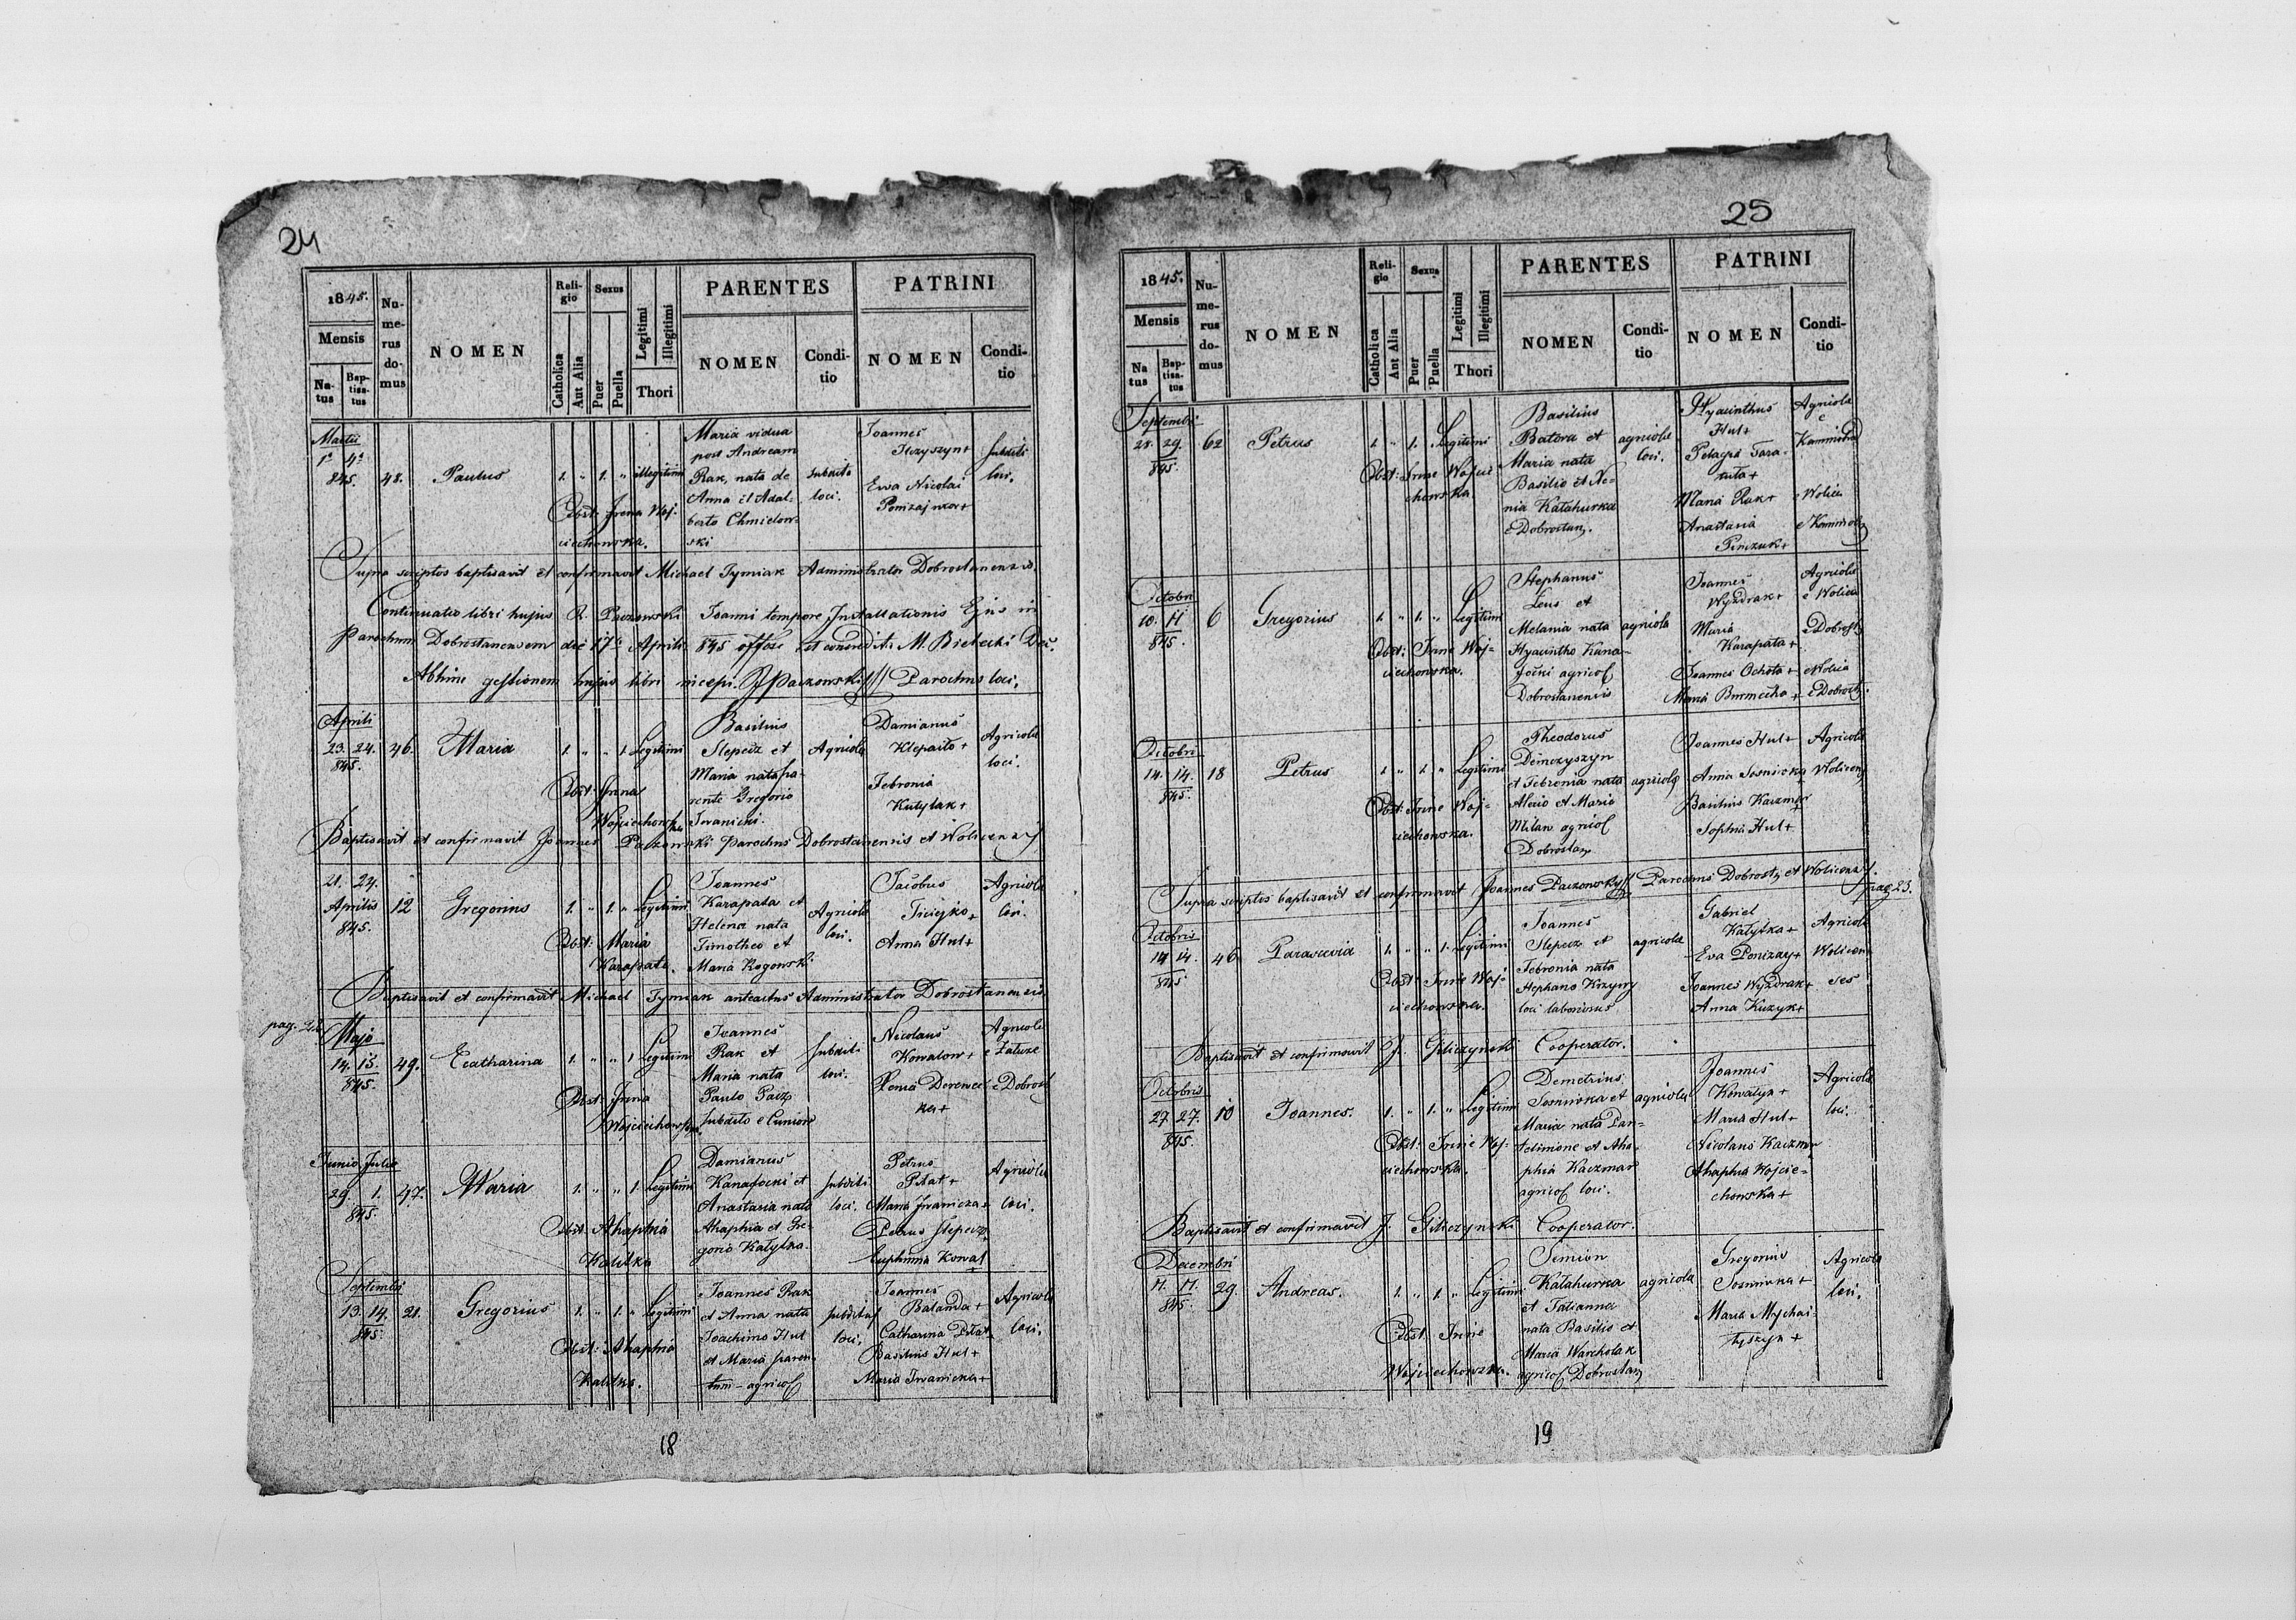 24
1845.
Mensis
Na-
tus
Bap-
tisa-
tus
Nu-
me-
rus
do-
mus
NOMEN
Reli-
gio
Catholica
Aut Alia
Sexus
Puer
Puella
Legitimi
Illegitimi
Thori
PARENTES
NOMEN
Condi-
tio
PATRINI
NOMEN
Condi-
tio
Martii
1ª 4ª
845.
48.
Paulus
1. " 1. " illegitimi
Obst: Irena Woj-
ciechowska.
Maria vidua
post Andream
Rak, nata de
Anna et Adal-
berto Chmielow-
ski
subditi
loci.
Joannes
Ewa Nicolai
subditi
loci.
Supra scriptos baptisavit et confirmavit Michael Tymiak Administrator Dobrostanensis.
Continuatio libri hujus R. Paczowski Joanni tempore Installationis Ejus in
Parochum Dobrostanensem die 17ª Aprilis 845 et concredit M. Bielecki Dec.
Abhinc gestionem hujus libri incepi. J Paczowski Parochus loci.
Aprili
23. 24.
845.
46.
Maria
1. " " 1. Legitimi
Obst: Irena
Wojciechowska
Basilius
Slepecz et
Maria nata pa-
rente Gregorio
Iwanicki.
Agricola
Damianus
Klepaito +
Febronia
Kutylak +
Agricola
loci.
Baptisavit et confirmavit Joannes Paczowski Parochus Dobrostanensis et Wolicensis
21. 24.
Aprilis
845.
12
Gregorius
1. " 1. " Legitimi
Obst: Maria
Karapata.
Joannes
Karapata et
Helena nata
Timotheo et
Maria Rogowski
Agricola
loci.
Jacobus
Anna Hul +
Agricola
loci.
Baptisavit et confirmavit Michael Tymiak anteactus Administrator Dobrostanensis
pag. 22
Majo
14. 15.
845.
49.
Ecatharina
1. " " 1 Legitimi
Obst: Irena
Wojciechowska
Joannes
Rak et
Maria nata
Paulo Paiz
subdito e Cuniow
subditi
loci.
Nicolaus
Kowalow +
Xenia Derewec-
ka +
Agricola
e Zaluze
e Dobrost
Junio Julio
29. 1.
845.
47.
Maria
1. " " 1. Legitimi
Obst: Ahaphia
Kalitka
Damianus
Kanafocki et
Anastasia nata
Ahaphia et Gre-
gorio Kalytka.
subditi
loci.
Petrus
Pilat +
Maria Iwanicka +
Petrus Slepecz
Euphimia Kowal
Agricola
loci.
Septembri
13. 14.
845.
21.
Gregorius
1. " 1. " Legitimi
Obst: Ahaphia
Kalitka.
Joannes Rak
et Anna nata
Joachimo Hul
et Maria paren-
tum - agricol
subditi
loci.
Joannes
Balanda +
Catharina Pilat
Basilius Hul +
Maria Iwanicka +
Agricola
loci.
18
25
1845.
Mensis
Na
tus
Bap-
tisa-
tus
Nu-
me-
rus
do-
mus
NOMEN
Reli-
gio
Catholica
Aut Alia
Sexus
Puer
Puella
Legitimi
Illegitimi
Thori
PARENTES
NOMEN
Condi-
tio
PATRINI
NOMEN
Condi-
tio
Septembri
28. 29.
845.
62
Petrus
1. " 1. Legitimi
Obst: Irine Wojcie
chowska
Basilius
Batora et
Maria nata
Basilio et Xe-
nia Katahurka
e Dobrostan.
agricola
loci.
Hyacinthus
Hul +
Pelagia Tara-
tuta +
Maria Rak +
Anastasia
Pinczuk +
Agricola
e
e Wolica
Octobri
10. 11
845.
6
Gregorius
1. " 1. " Legitimi
Obst: Irine Woj-
ciechowska.
Stephanus
Leus et
Melania nata
Hyacintho Kana-
focki agricol
Dobrostanensis
agricola
Joannes
Wyzdrak +
Maria
Karapata +
Joannes Ochota +
Maria Burmecka +
Agricola
e Wolica
e Dobrost
e Wolica
e Dobrost.
Octobri
14. 14.
845.
18
Petrus
1. " 1. " Legitimi
Obst: Irine Woj-
ciechowska.
Theodorus
Demczyszyn
et Febronia nata
Alexio et Maria
Milan agricol
Dobrostan
agricola
Joannes Hul +
Anna Sosnicka
Basilius Kaczmar
Sophia Hul +
Agricola
Wolicens
Supra scriptos baptisavit et confirmavit Joannes Paczowski Parochus Dobrost. et Wolicensis.
pag. 23.
Octobris
14 14.
845
46
Parascevia
1. " " 1. Legitimi
Obst: Irine Woj-
ciechowska.
Joannes
Slepecz et
Febronia nata
Stephano Krzywy
loci laboriosus
agricola
Gabriel
Kalytka +
Eva Ponizay +
Joannes Wyzdrak +
Anna Kuzyk +
Agricola
Wolicen-
ses
Baptisavit et confirmavit J. Giliczynski Cooperator.
Octobris
27. 27.
845.
10
Joannes.
1. " 1. " Legitimi
Obst: Irine Woj-
ciechowska.
Demetrius
Sosnicka et
Maria nata Pan-
telimone et Aha-
phia Kaczmar
agricol loci.
agricola
Joannes
Kowalyk +
Maria Hul +
Nicolaus Kaczmar
Ahaphia Wojcie-
chowska +
Agricola
loci.
Baptisavit et confirmavit J. Giliczynski Cooperator.
Decembri
11. 11.
845.
29.
Andreas.
1. " 1. " Legitimi
Obst: Irine
Wojciechowska.
Semion
Katahurka
et Tatianna
nata Basilio et
Maria Warcholak
agricol Dobrostan
agricola
Gregorius
Sosnicka +
Maria Mychai-
łyszyn +
Agricola
loci.
19